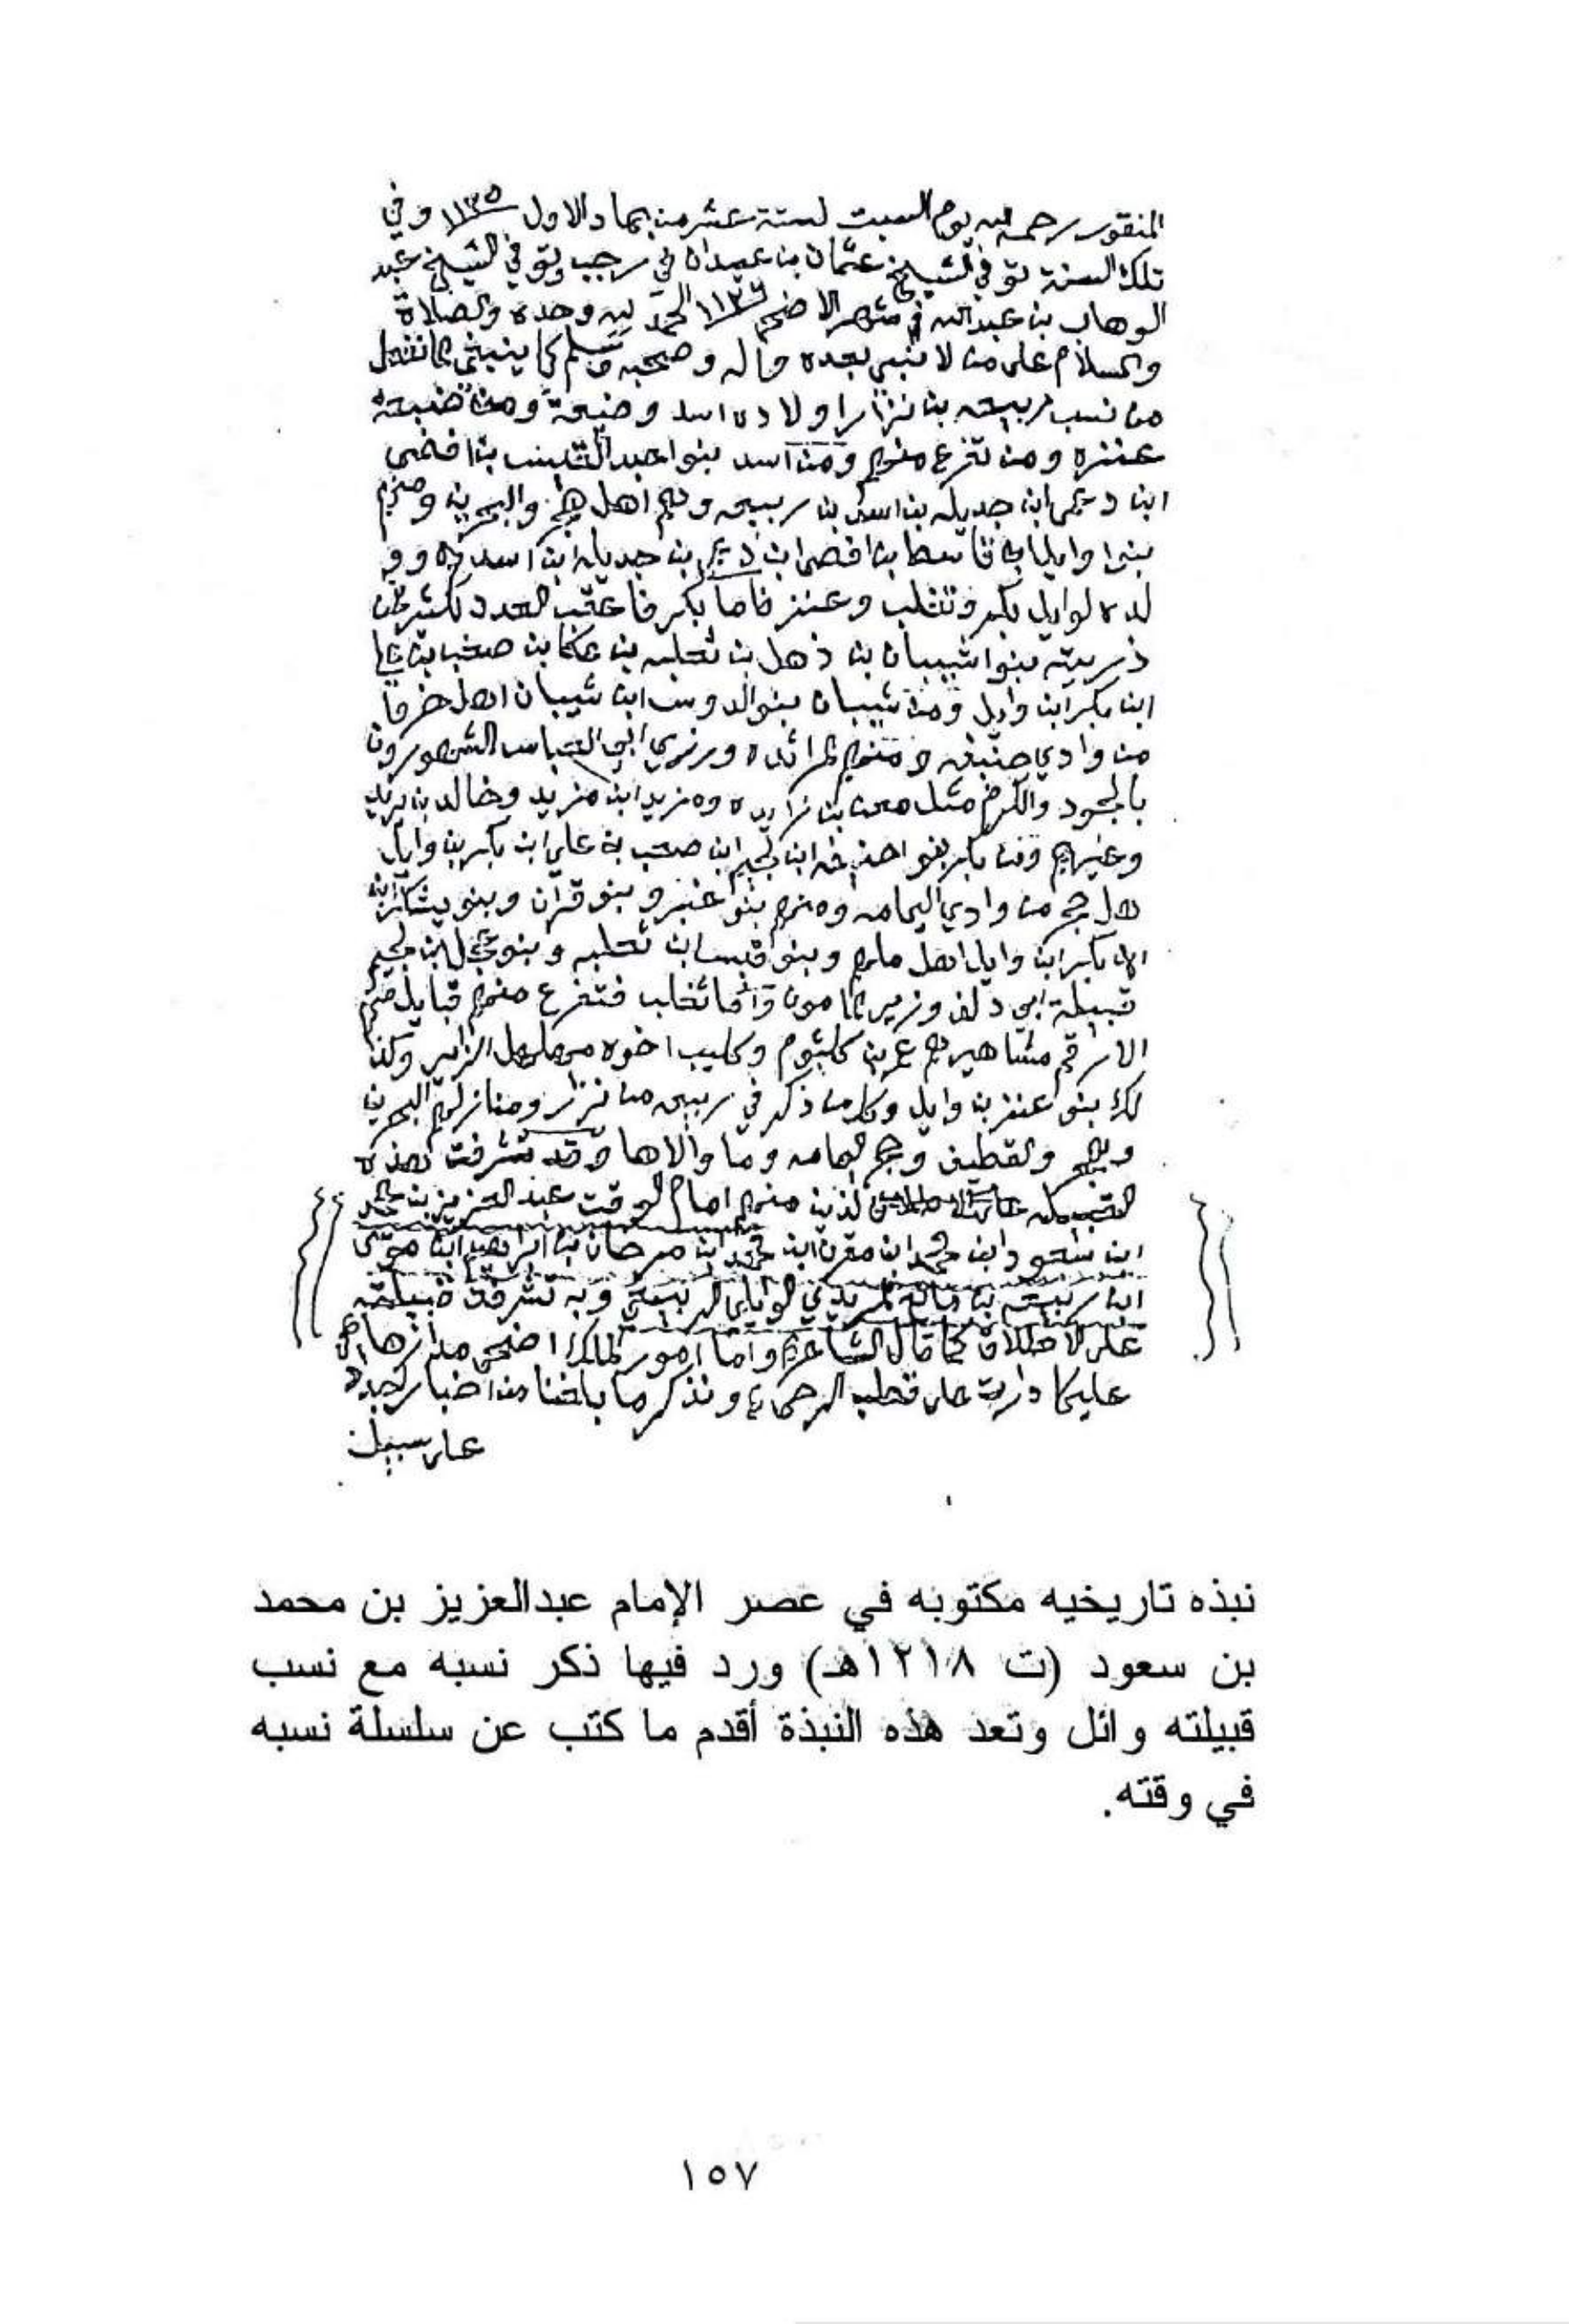 المنقور رحمه الله يوم السبت لستة عشر من جماد الاول ١١٣٥ وفي
تلك السنة توفي الشيخ عثمان بن عبدان في رجب وتوفي الشيخ عبد
الوهاب بن عبدالله في شهر الاضحى ١١٣٦ الحمد لله وحده والصلاة
والسلام على من لا نبي بعده واله وصحبه وسلم كما ينبغي
من نسب ربيعه بن نزار اولاده اسد وضبيعة ومن ضبيعة
عنزه ومن تفرع منهم ومن اسد بنوا عبد القيس بن افصى
ابن دعمى ابن جديله بن اسد بن ربيعه وهم اهل هجر والبحرين ومنهم
بنوا وايل ابن قاسط ابن افصى ابن دعمى بن جديله ابن اسد
لده لوايل بكر وتغلب وعنز فاما بكر فاعقب العدد الكثير فمن
ذريته بنوا شيبان بن ذهل بن ثعلبه بن عكابه بن صعب بن علي
ابن بكر ابن وايل ومن شيبان بنو الدوس ابن شيبان اهل
من وادي حنيفه ومنهم المشهورون
بالجود والكرم مثل معن بن زايده ومزيد ابن مزيد وخالد بن يزيد
وغيرهم ومن بكر بنو احنيفه ابن لجيم ابن صعب بن علي ابن بكر بن وايل
اهل حجر من وادي اليمامه ومنهم بنو غبر وبنو قران وبنو يشكر ابن
بكر ابن وايل اهل ملهم وبنو قيس ابن ثعلبه وبنو عجل ابن لجيم
قبيلة ابي دلف وزير المامون واما تغلب فتفرع منهم قبايل منهم
الاراقم مشاهيرهم عمر بن كلثوم وكليب اخوه مهلهل الزير وكذا
لك بنو عنز بن وايل وكل من ذكر في ربيعه من نزار ومنازلهم البحرين
وهجر والقطيف وحجر اليمامه وما والاها وقد تشرفت بهذه
القبيله الذين منهم امام الوقت عبد العزيز بن محمد
ابن سعود ابن محمد ابن مقرن ابن محمد ابن مرخان بن ابراهيم ابن موسى
ابن ربيعه بن مانع المريدي الوايلي الربيعي وبه تشرفت قبيلته
على الاطلاق كما قال الشاعر واما امور الملك اضحى مدارها
عليكما دارت على قطب الرحى ونذكر ما بلغنا من اخبار
على سبيل
نبذه تاريخيه مكتوبه في عصر الإمام عبدالعزيز بن محمد
بن سعود (ت ١٢١٨هـ) ورد فيها ذكر نسبه مع نسب
قبيلته وائل وتعد هذه النبذة أقدم ما كتب عن سلسلة نسبه
في وقته.
١٥٧